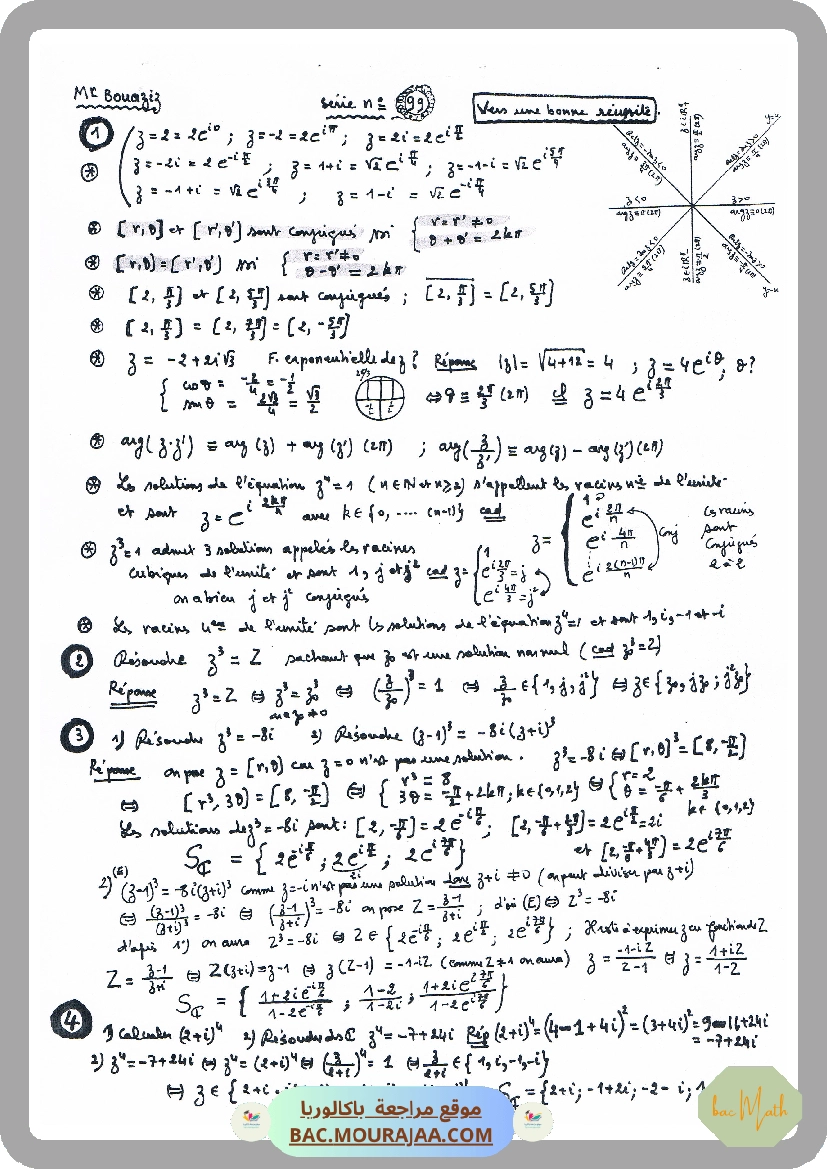 Mr Bouaziz
série n° 99
Vers une bonne réussite.
1
z = 2 = 2e^{i0} ; z = -2 = 2e^{iπ} ; z = 2i = 2e^{iπ/2}
z = -2i = 2e^{-iπ/2} ; z = 1+i = √2 e^{iπ/4} ; z = -1-i = √2 e^{i5π/4}
z = -1+i = √2 e^{i3π/4} ; z = 1-i = √2 e^{-iπ/4}
z<0
z>0
[r,θ] et [r',θ'] sont conjugués ssi { r = r' ≠ 0
θ + θ' = 2kπ
[r,θ] = [r',θ'] ssi { r = r' ≠ 0
θ - θ' = 2kπ
[2, π/3] et [2, 5π/3] sont conjugués ; \overline{[2, π/3]} = [2, 5π/3]
[2, π/3] = [2, 7π/3] = [2, -5π/3]
z = -2 + 2i√3 F. exponentielle de z ? Réponse |z| = √(4+12) = 4 ; z = 4e^{iθ}, θ ?
{ cos θ = -2/4 = -1/2
sin θ = 2√3/4 = √3/2 ⇔ θ ≡ 2π/3 (2π) cl z = 4e^{i2π/3}
arg(z·z') ≡ arg(z) + arg(z') (2π) ; arg(z/z') ≡ arg(z) - arg(z') (2π)
Les solutions de l'équation z^n = 1 (n ∈ ℕ et n ≥ 2) s'appellent les racines n^e de l'unité
et sont z = e^{i2kπ/n} avec k ∈ {0, .... (n-1)} cad
z = { 1
e^{i2π/n}
e^{i4π/n}
e^{i2(n-1)π/n}
Conj
les racines
sont
conjugués
2 à 2
z³ = 1 admet 3 solutions appelés les racines
cubiques de l'unité et sont 1, j et j² cad z = { 1
e^{i2π/3} = j
e^{i4π/3} = j²
on a bien j et j² conjugués
Les racines 4^{èmes} de l'unité sont les solutions de l'équation z⁴ = 1 et sont 1, i, -1 et -i
2 Résoudre z³ = Z sachant que z₀ est une solution non nul (cad z₀³ = Z)
Réponse z³ = Z ⇔ z³ = z₀³ ⇔ (z/z₀)³ = 1 ⇔ z/z₀ ∈ {1, j, j²} ⇔ z ∈ {z₀, jz₀, j²z₀}
3 1) Résoudre z³ = -8i 2) Résoudre (z-1)³ = -8i(z+i)³
Réponse on pose z = [r,θ] car z = 0 n'est pas une solution. z³ = -8i ⇔ [r,θ]³ = [8, -π/2]
⇔ [r³, 3θ] = [8, -π/2] ⇔ { r³ = 8
3θ = -π/2 + 2kπ ; k ∈ {0,1,2} ⇔ { r = 2
θ = -π/6 + 2kπ/3
k ∈ {0,1,2}
Les solutions de z³ = -8i sont : [2, -π/6] = 2e^{-iπ/6} ; [2, -π/6 + 2π/3] = 2e^{iπ/2} = 2i
et [2, -π/6 + 4π/3] = 2e^{i7π/6}
S_ℂ = { 2e^{-iπ/6} ; 2e^{iπ/2} ; 2e^{i7π/6} }
2i
2) (E) (z-1)³ = -8i(z+i)³ comme z = -i n'est pas une solution donc z+i ≠ 0 (on peut diviser par z+i)
⇔ (z-1)³/(z+i)³ = -8i ⇔ ((z-1)/(z+i))³ = -8i on pose Z = (z-1)/(z+i) ; d'où (E) ⇔ Z³ = -8i
d'après 1°) on aura Z³ = -8i ⇔ Z ∈ {2e^{-iπ/6} ; 2e^{iπ/2} ; 2e^{i7π/6}} ; il reste à exprimer z en fonction de Z
Z = (z-1)/(z+i) ⇔ Z(z+i) = z-1 ⇔ z(Z-1) = -1-iZ (comme Z ≠ 1 on aura) z = (-1-iZ)/(Z-1) ⇔ z = (1+iZ)/(1-Z)
S_ℂ = { (1+2ie^{-iπ/6})/(1-2e^{-iπ/6}) ; (1-2)/(1-2i) ; (1+2ie^{i7π/6})/(1-2e^{i7π/6}) }
4 1) Calculer (2+i)⁴ 2) Résoudre ds ℂ z⁴ = -7+24i Rép (2+i)⁴ = (4-1+4i)² = (3+4i)² = 9-16+24i
= -7+24i
2) z⁴ = -7+24i ⇔ z⁴ = (2+i)⁴ ⇔ (z/(2+i))⁴ = 1 ⇔ z/(2+i) ∈ {1, i, -1, -i}
⇔ z ∈ { 2+i
= {2+i; -1+2i; -2-i; 1
موقع مراجعة باكالوريا
BAC.MOURAJAA.COM
bac Math